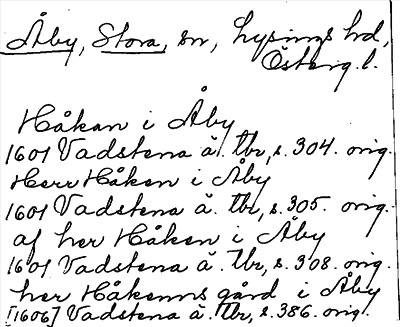 Åby, Stora, sn, Lysings hd,
Österg. l.
Håkan i Åby
1601 Vadstena ä. tbr, s. 304. orig.
Herr Håken i Åby
1601 Vadstena ä. tbr, s. 305. orig.
af her Håken i Åby
1601 Vadstena ä. tbr, s. 308. orig.
her Håkenns gård i Åby
[1606] Vadstena ä. tbr, s. 386. orig.